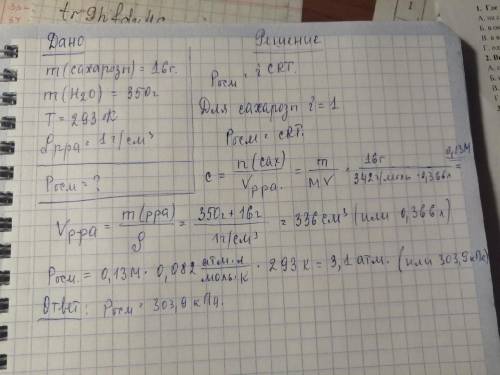 Дано
Решение
m (сахарозы) = 16 г.
m (H₂O) = 350 г
T = 293 K
ρ р-ра = 1 г/см³
Pосм = ?
Pосм = i CRT.
Для сахарозы i = 1
Pосм = cRT.
c = n(сах) / Vр-ра. = m / MV = 16 г / 342 г/моль · 0,366 л = 0,13 М
Vр-ра = m(р-ра) / ρ = 350 г + 16 г / 1 г/см³ = 336 см³ (или 0,366 л)
Pосм = 0,13 М · 0,082 атм·л / моль·К · 293 К = 3,1 атм. (или 303,9 кПа)
Ответ: Pосм = 303,9 кПа.
1. Где
2. В